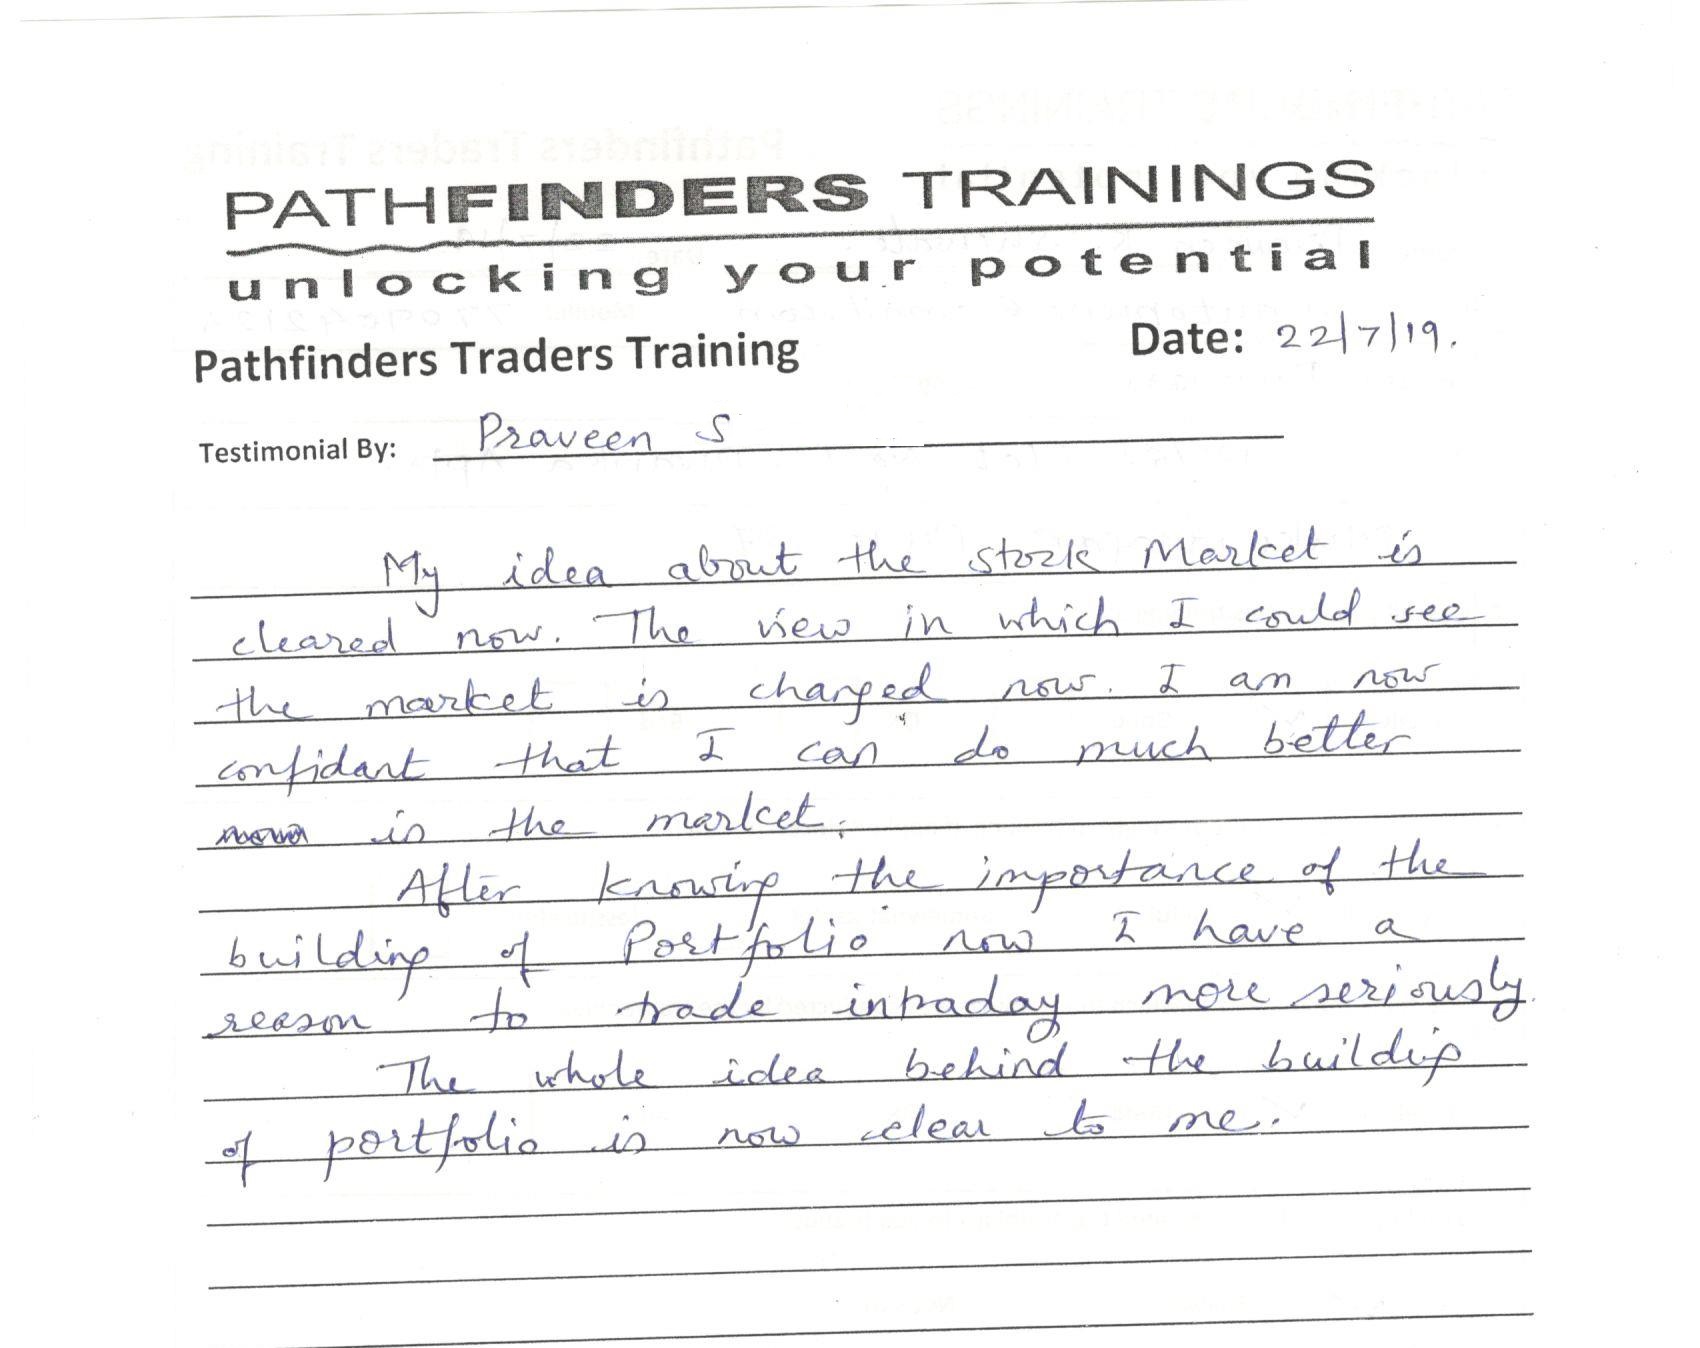 PATHFINDERS TRAININGS
unlocking your potential
Pathfinders Traders Training Date: 22/7/19.
Testimonial By: Praveen S
My idea about the stock Market is
cleared now. The view in which I could see
the market is changed now. I am now
confidant that I can do much better
is the market.
After knowing the importance of the
building of Portfolio now I have a
reason to trade intraday more seriously.
The whole idea behind the building
of portfolio is now clear to me.